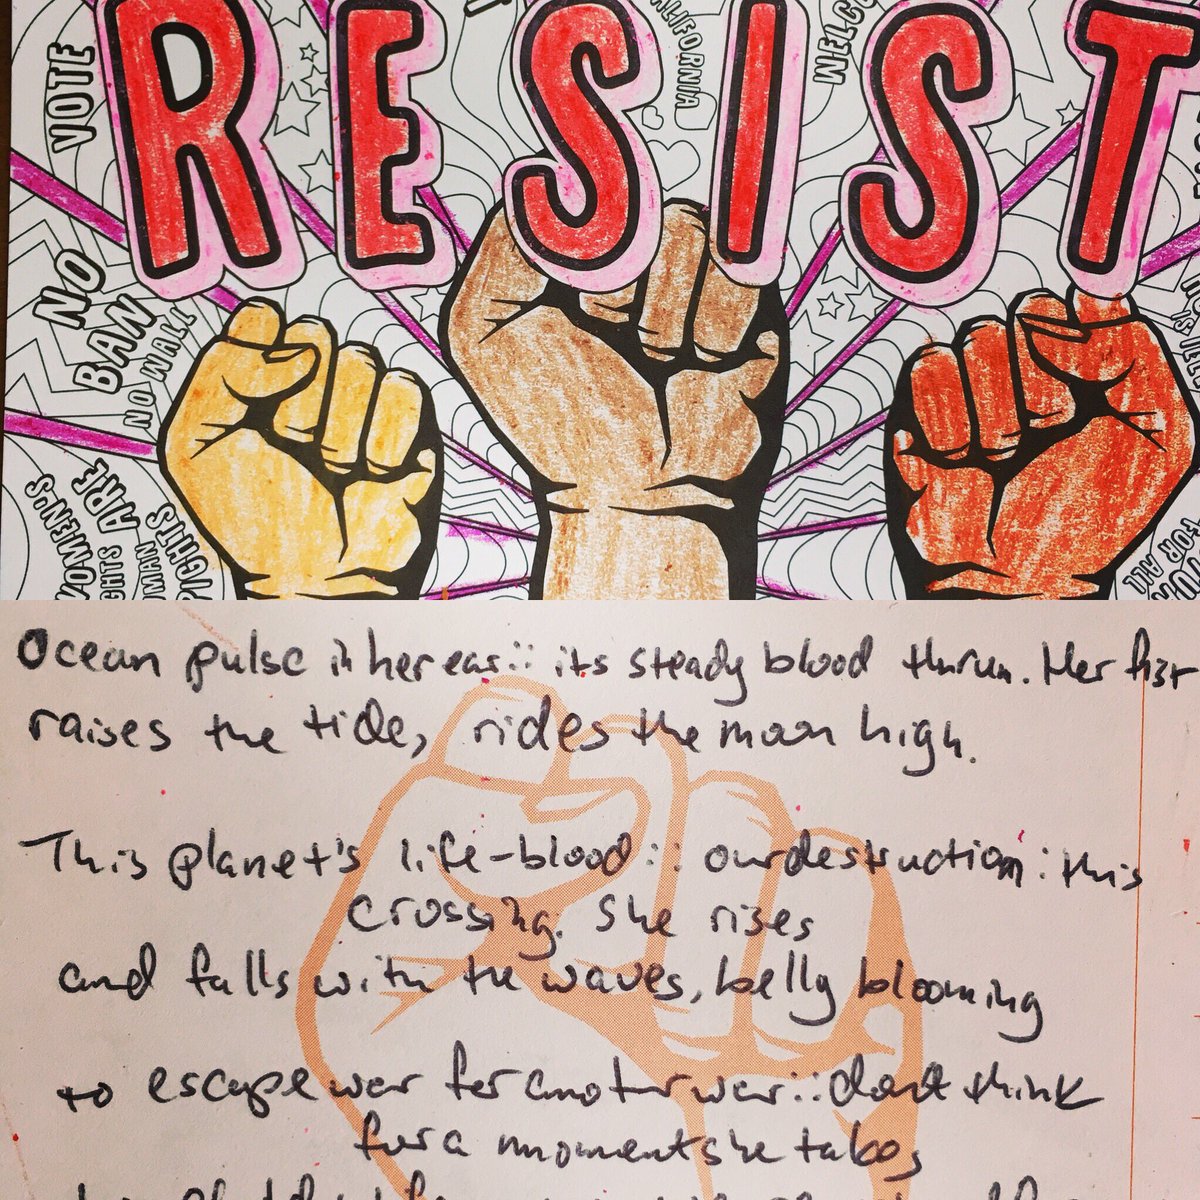 RESIST
VOTE
CALIFORNIA
WELCO
NO
BAN
NO WALL
WOMEN'S
RIGHTS ARE
HUMAN
RIGHTS
IS ILL
FOR ALL
Ocean pulse in her ear :: its steady blood thrum. Her fist
raises the tide, rides the moon high.
This planet's life-blood :: our destruction : this
crossing. She rises
and falls with the waves, belly blooming
to escape war for another war :: don't think
for a moment she takes